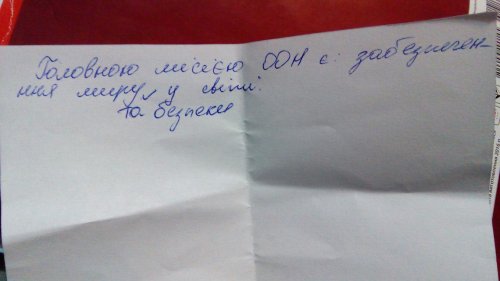 Головною місією ООН є: забезпечен-
ня миру у світі.
та безпеки